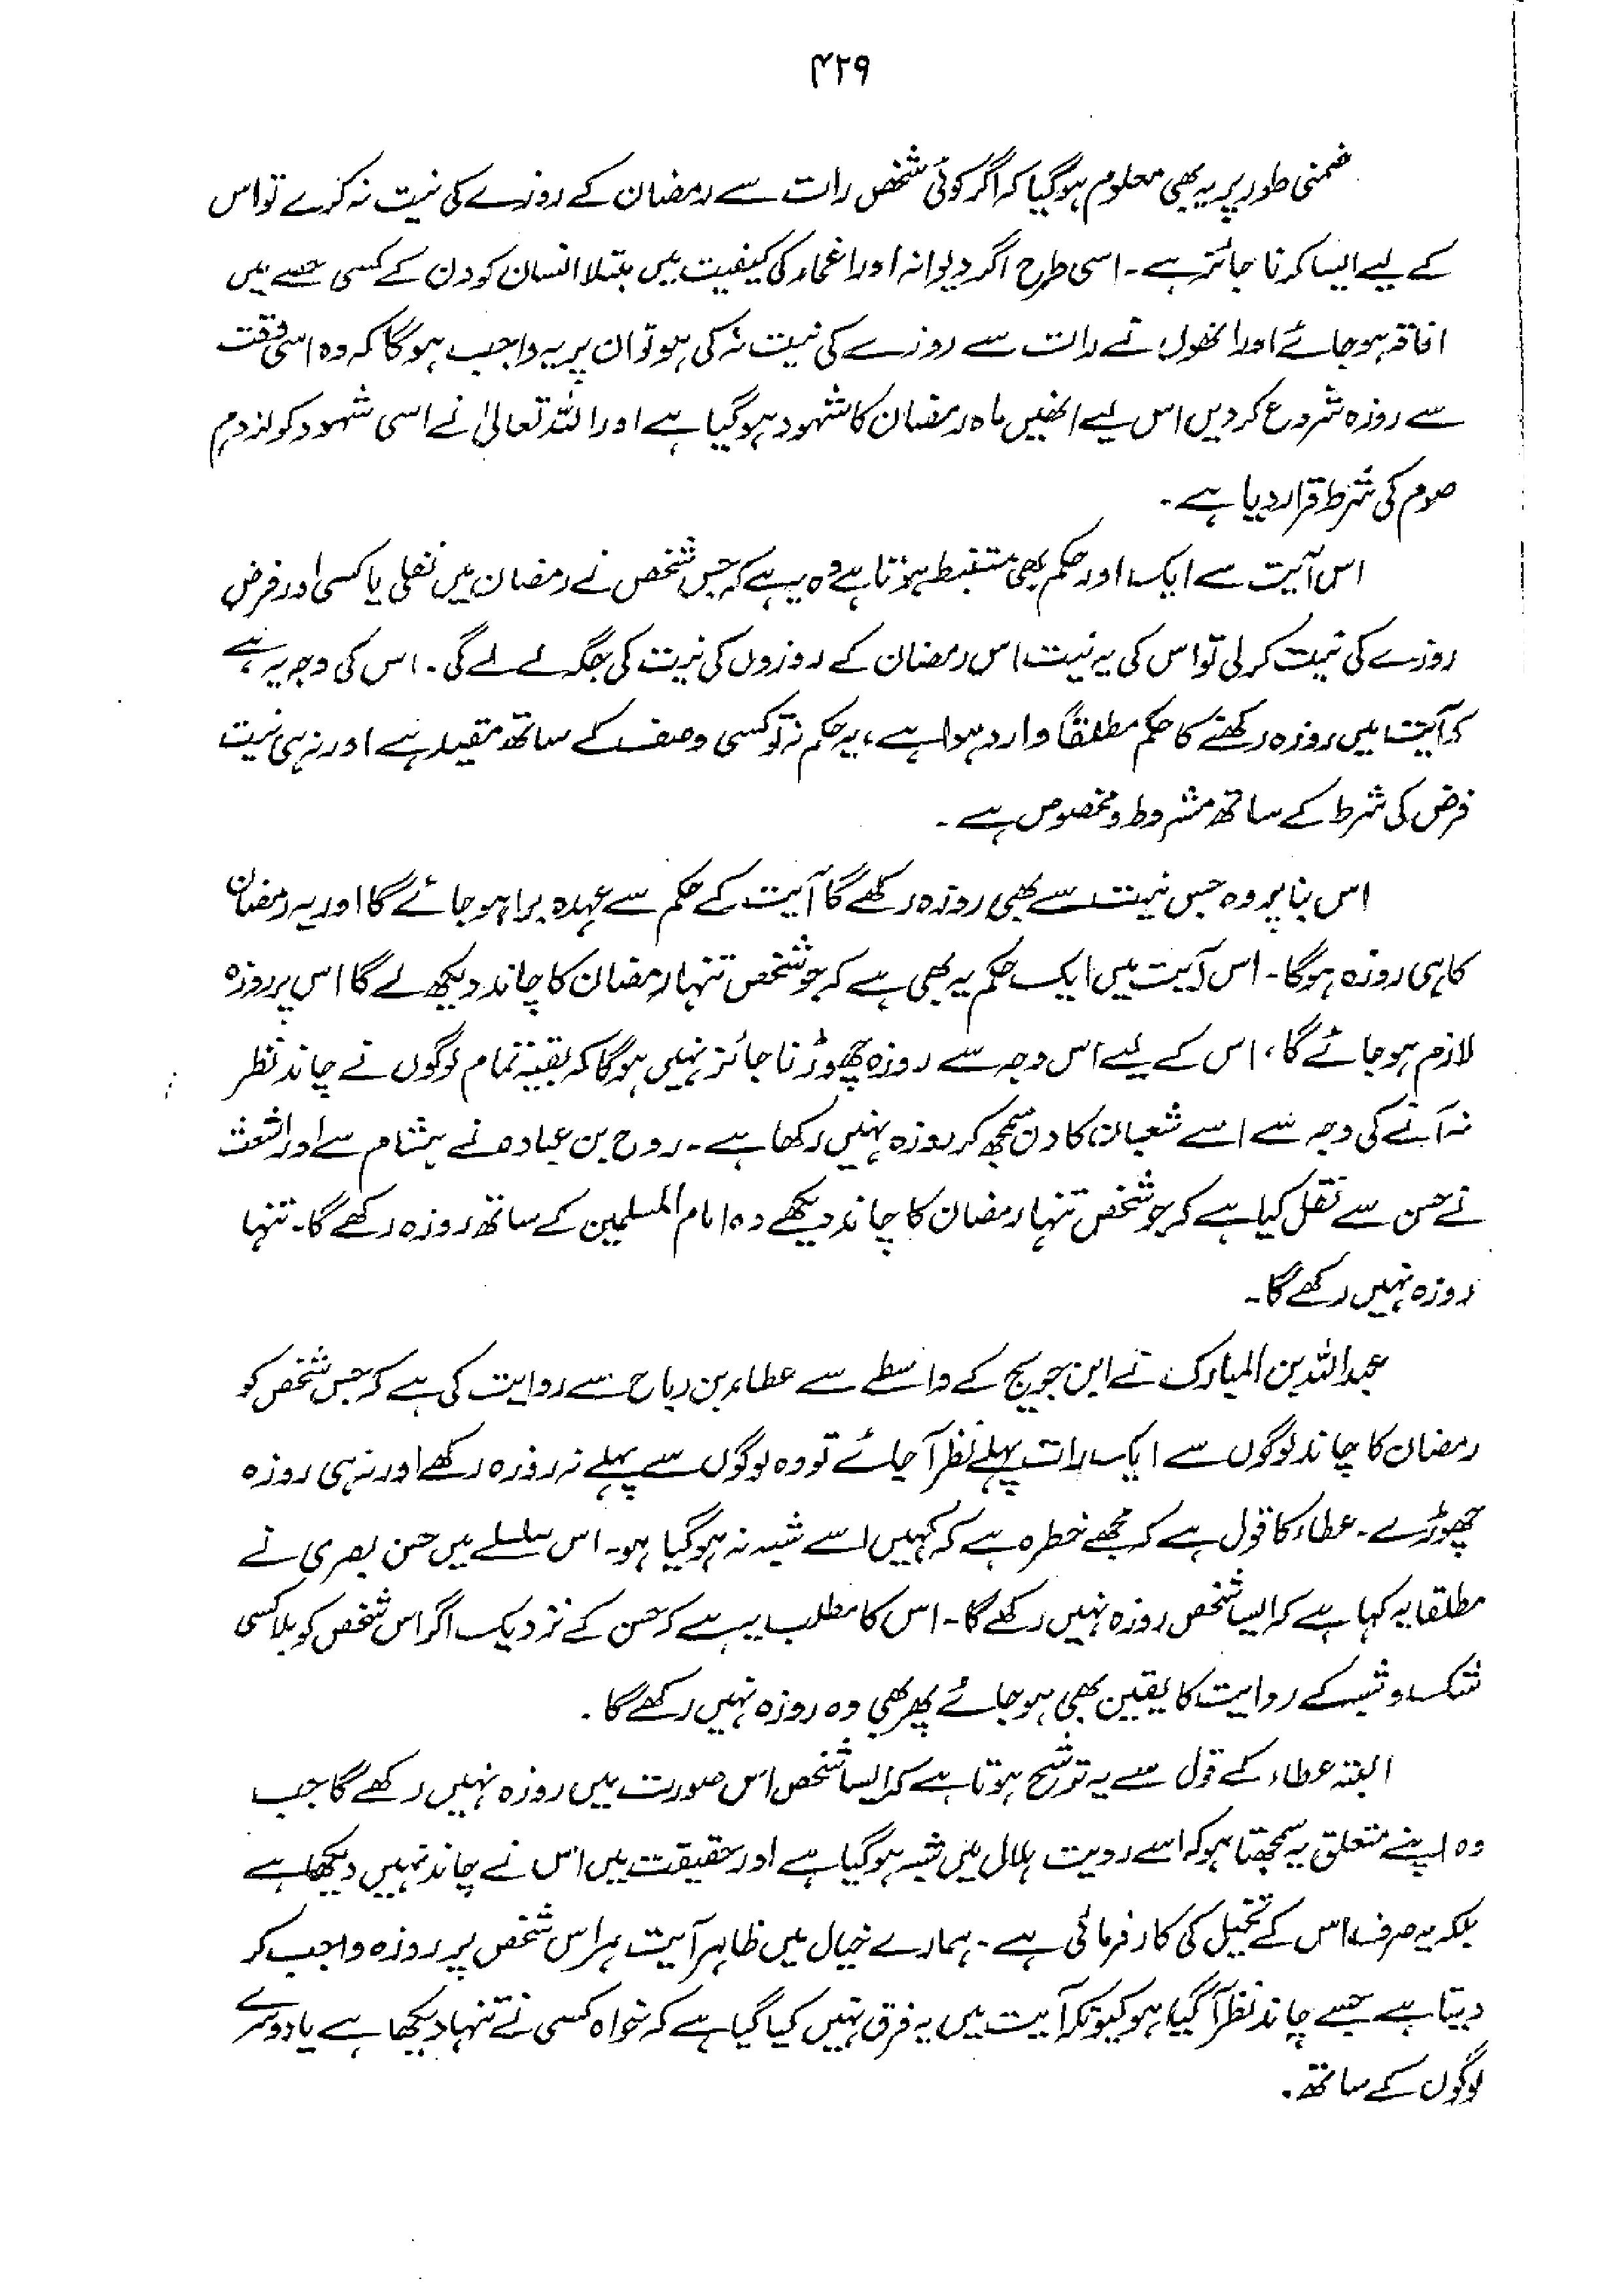 ۴۲۹
ضمنی طور پر یہ بھی معلوم ہوگیا کہ اگر کوئی شخص رات سے رمضان کے روزے کی نیت نہ کرے تو اس
کے لیے ایسا کرنا جائز ہے۔ اسی طرح اگر دیوانہ اور اغماء کی کیفیت میں مبتلا انسان کو دن کے کسی حصے میں
افاقہ ہو جائے اور انھوں نے رات سے روزے کی نیت نہ کی ہو تو ان پر یہ واجب ہوگا کہ وہ اسی وقت
سے روزہ شروع کر دیں اس لیے انھیں ماہ رمضان کا شہود ہوگیا ہے اور اللہ تعالیٰ نے اسی شہود کو لزوم
صوم کی شرط قرار دیا ہے۔
اس آیت سے ایک اور حکم بھی مستنبط ہوتا ہے وہ یہ ہے کہ جس شخص نے رمضان میں نفلی یا کسی اور فرض
روزے کی نیت کر لی تو اس کی یہ نیت اس رمضان کے روزوں کی نیت کی جگہ لے لے گی۔ اس کی وجہ یہ ہے
کہ آیت میں روزہ رکھنے کا حکم مطلقاً وارد ہوا ہے، یہ حکم نہ تو کسی وصف کے ساتھ مقید ہے اور نہ ہی نیت
فرض کی شرط کے ساتھ مشروط و مخصوص ہے۔
اس بنا پر وہ جس نیت سے بھی روزہ رکھے گا آیت کے حکم سے عہدہ برا ہو جائے گا اور یہ رمضان
کا ہی روزہ ہوگا۔ اس آیت میں ایک حکم یہ بھی ہے کہ جو شخص تنہا رمضان کا چاند دیکھ لے گا اس پر روزہ
لازم ہو جائے گا، اس کے لیے اس وجہ سے روزہ چھوڑنا جائز نہیں ہوگا کہ بقیہ تمام لوگوں نے چاند نظر
نہ آنے کی وجہ سے اسے شعبان کا دن سمجھ کر روزہ نہیں رکھا ہے۔ روح بن عبادہ نے ہشام سے اور اشعث
نے حسن سے نقل کیا ہے کہ جو شخص تنہا رمضان کا چاند دیکھے وہ امام المسلمین کے ساتھ روزہ رکھے گا۔ تنہا
روزہ نہیں رکھے گا۔
عبداللہ بن المبارک نے ابن جریج کے واسطے سے عطاء بن رباح سے روایت کی ہے کہ جس شخص کو
رمضان کا چاند لوگوں سے ایک رات پہلے نظر آ جائے تو وہ لوگوں سے پہلے نہ روزہ رکھے اور نہ ہی روزہ
چھوڑے۔ عطاء کا قول ہے کہ مجھے خطرہ ہے کہ کہیں اسے شبہ نہ ہوگیا ہو۔ اس سلسلے میں حسن بصری نے
مطلقا یہ کہا ہے کہ ایسا شخص روزہ نہیں رکھے گا۔ اس کا مطلب یہ ہے کہ حسن کے نزدیک اگر اس شخص کو بلا کسی
شک و شبہ کے روایت کا یقین بھی ہو جائے پھر بھی وہ روزہ نہیں رکھے گا۔
البتہ عطاء کے قول سے یہ ترشح ہوتا ہے کہ ایسا شخص اس صورت میں روزہ نہیں رکھے گا جب
وہ اپنے متعلق یہ سمجھتا ہو کہ اسے رویت ہلال میں شبہ ہوگیا ہے اور حقیقت میں اس نے چاند نہیں دیکھا ہے
بلکہ یہ صرف اس کے تخیل کی کارفرمائی ہے۔ ہمارے خیال میں ظاہر آیت ہر اس شخص پر روزہ واجب کر
دیتا ہے جسے چاند نظر آ گیا ہو کیونکہ آیت میں یہ فرق نہیں کیا گیا ہے کہ خواہ کسی نے تنہا دیکھا ہے یا دوسرے
لوگوں کے ساتھ۔